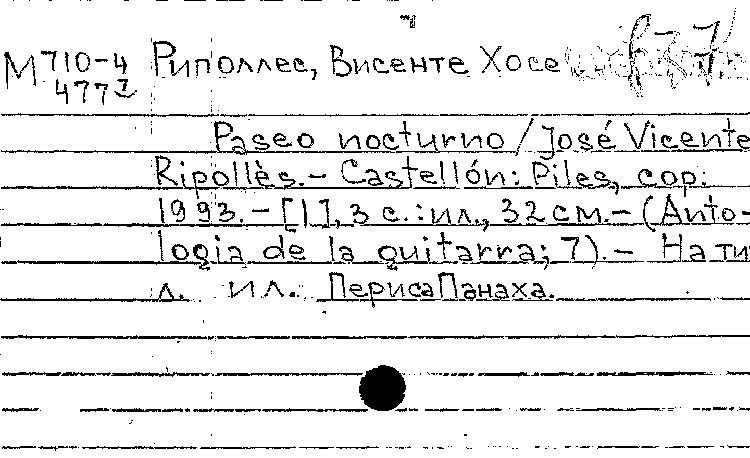 М 710-4 Риполлес, Висенте Хосе
477
Paseo nocturno / José Vicente
Ripollès.- Castellón: Piles, cop.
1993. - [1], 3 с. : ил., 32 см.- (Anto-
logia de la guitarra; 7). - На ти
л. ил. Периса Панаха.